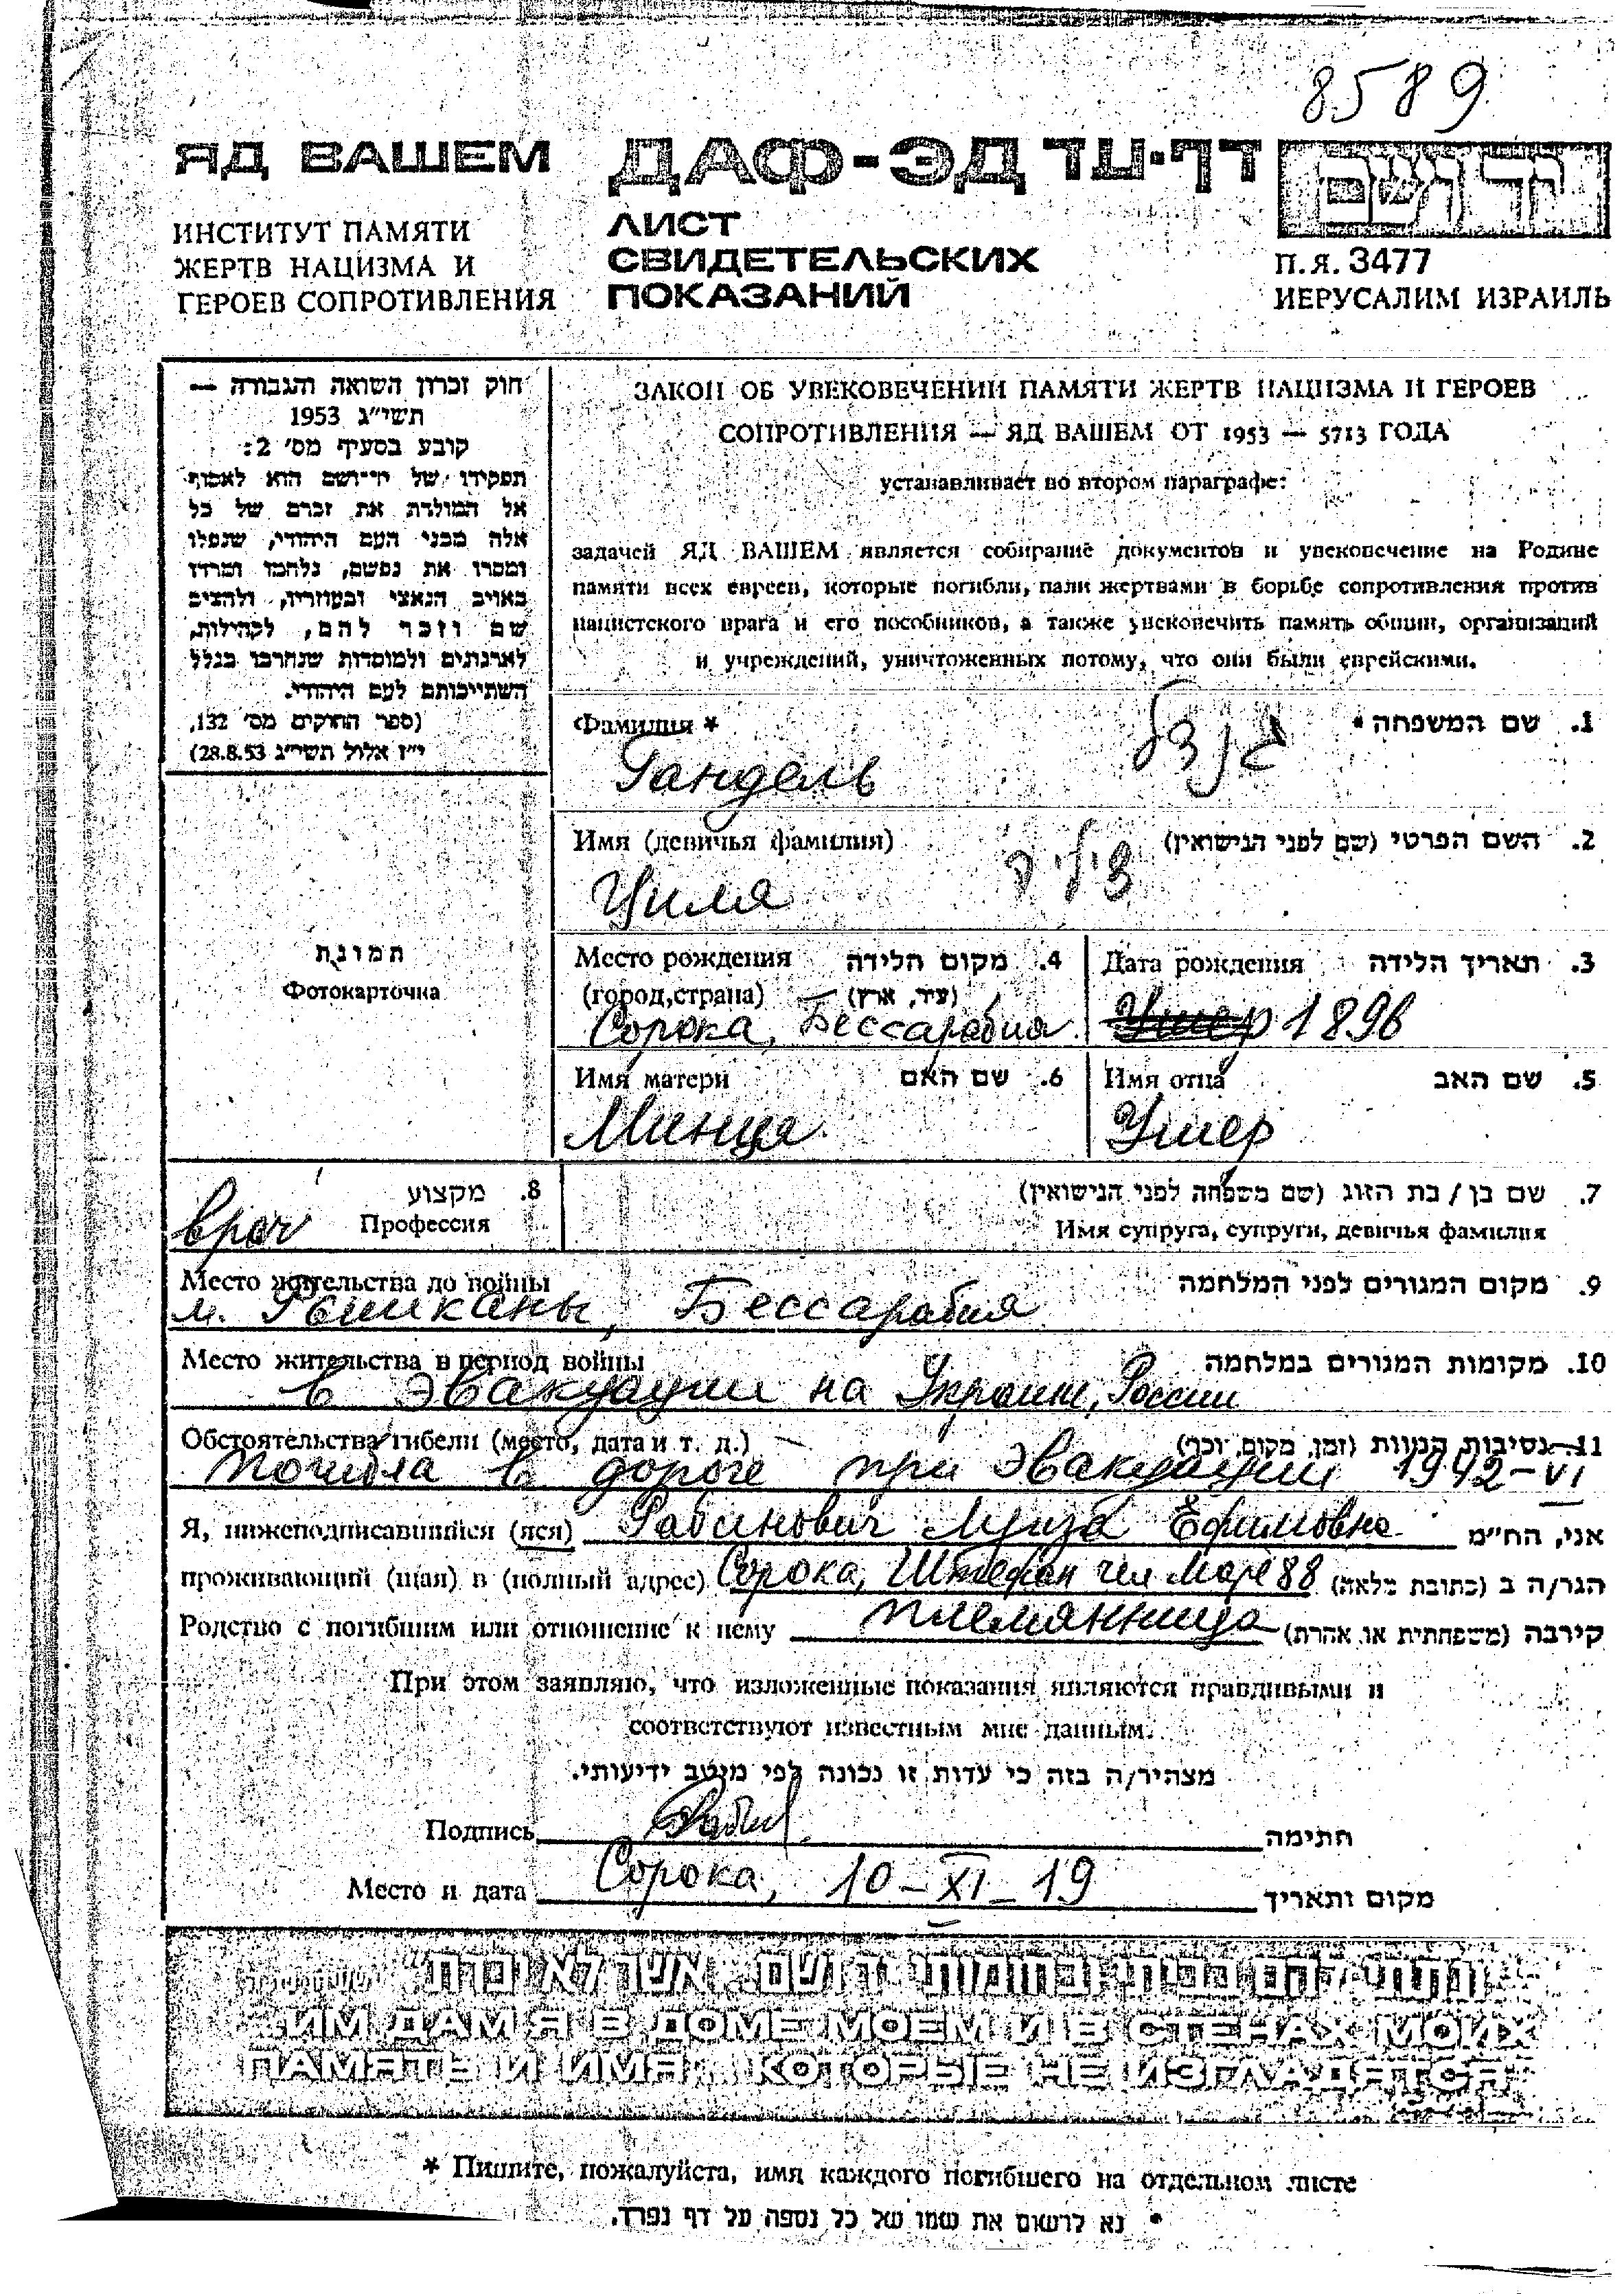 8589
ЯД ВАШЕМ
ДАФ-ЭД דף-עד
יד ושם
ИНСТИТУТ ПАМЯТИ
ЖЕРТВ НАЦИЗМА И
ГЕРОЕВ СОПРОТИВЛЕНИЯ
ЛИСТ
СВИДЕТЕЛЬСКИХ
ПОКАЗАНИЙ
П.Я. 3477
ИЕРУСАЛИМ ИЗРАИЛЬ
חוק זכרון השואה והגבורה —
תשי"ג 1953
קובע בסעיף מס' 2:
תפקידו של יד־ושם הוא לאסוף
אל המולדת את זכרם של כל
אלה מבני העם היהודי, שנפלו
ומסרו את נפשם, נלחמו ומרדו
באויב הנאצי ובעוזריו, ולהציב
שם וזכר להם, לקהילות,
לארגונים ולמוסדות שנחרבו בגלל
השתייכותם לעם היהודי.
(ספר החוקים מס' 132,
י"ז אלול תשי"ג 28.8.53)
ЗАКОН ОБ УВЕКОВЕЧЕНИИ ПАМЯТИ ЖЕРТВ НАЦИЗМА И ГЕРОЕВ
СОПРОТИВЛЕНИЯ — ЯД ВАШЕМ ОТ 1953 — 5713 ГОДА
устанавливает во втором параграфе:
задачей ЯД ВАШЕМ является собирание документов и увековечение на Родине
памяти всех евреев, которые погибли, пали жертвами в борьбе сопротивления против
нацистского врага и его пособников, а также увековечить память общин, организаций
и учреждений, уничтоженных потому, что они были еврейскими.
Фамилия * 1. שם המשפחה *
Гандель גנדל
Имя (девичья фамилия) 2. השם הפרטי (שם לפני הנישואין)
Циля ציליה
תמונה
Фотокарточка
Место рождения 4. מקום הלידה
(город,страна) (עיר, ארץ)
Сорока, Бессарабия
Дата рождения 3. תאריך הלידה
Ушер 1896
Имя матери 6. שם האם
Минця
Имя отца 5. שם האב
Ушер
8. מקצוע
врач Профессия
7. שם בן / בת הזוג (שם משפחה לפני הנישואין)
Имя супруга, супруги, девичья фамилия
Место жительства до войны 9. מקום המגורים לפני המלחמה
м. Рышканы, Бессарабия
Место жительства в период войны 10. מקומות המגורים במלחמה
в эвакуации на Украине, России
Обстоятельства гибели (место, дата и т. д.) 11. נסיבות המוות (זמן, מקום, וכו')
Погибла в дороге при эвакуации 1942-VI
Я, нижеподписавшийся (яся) Рабинович Луиза Ефимовна אני, הח"מ
проживающий (щая) в (полный адрес) Сорока, Штефан чел Маре 88 הגר/ה ב (כתובת מלאה)
Родство с погибшим или отношение к нему племянница קירבה (משפחתית או אחרת)
При этом заявляю, что изложенные показания являются правдивыми и
соответствуют известным мне данным.
מצהיר/ה בזה כי עדות זו נכונה לפי מיטב ידיעותי.
Подпись Рабин חתימה
Место и дата Сорока, 10-XI-19 מקום ותאריך
ונתתי להם בביתי ובחומותי יד ושם... אשר לא יכרת"
...ИМ ДАМ Я В ДОМЕ МОЕМ И В СТЕНАХ МОИХ
ПАМЯТЬ И ИМЯ... КОТОРЫЕ НЕ ИЗГЛАДЯТСЯ
* Пишите, пожалуйста, имя каждого погибшего на отдельном листе
* נא לרשום את שמו של כל נספה על דף נפרד.